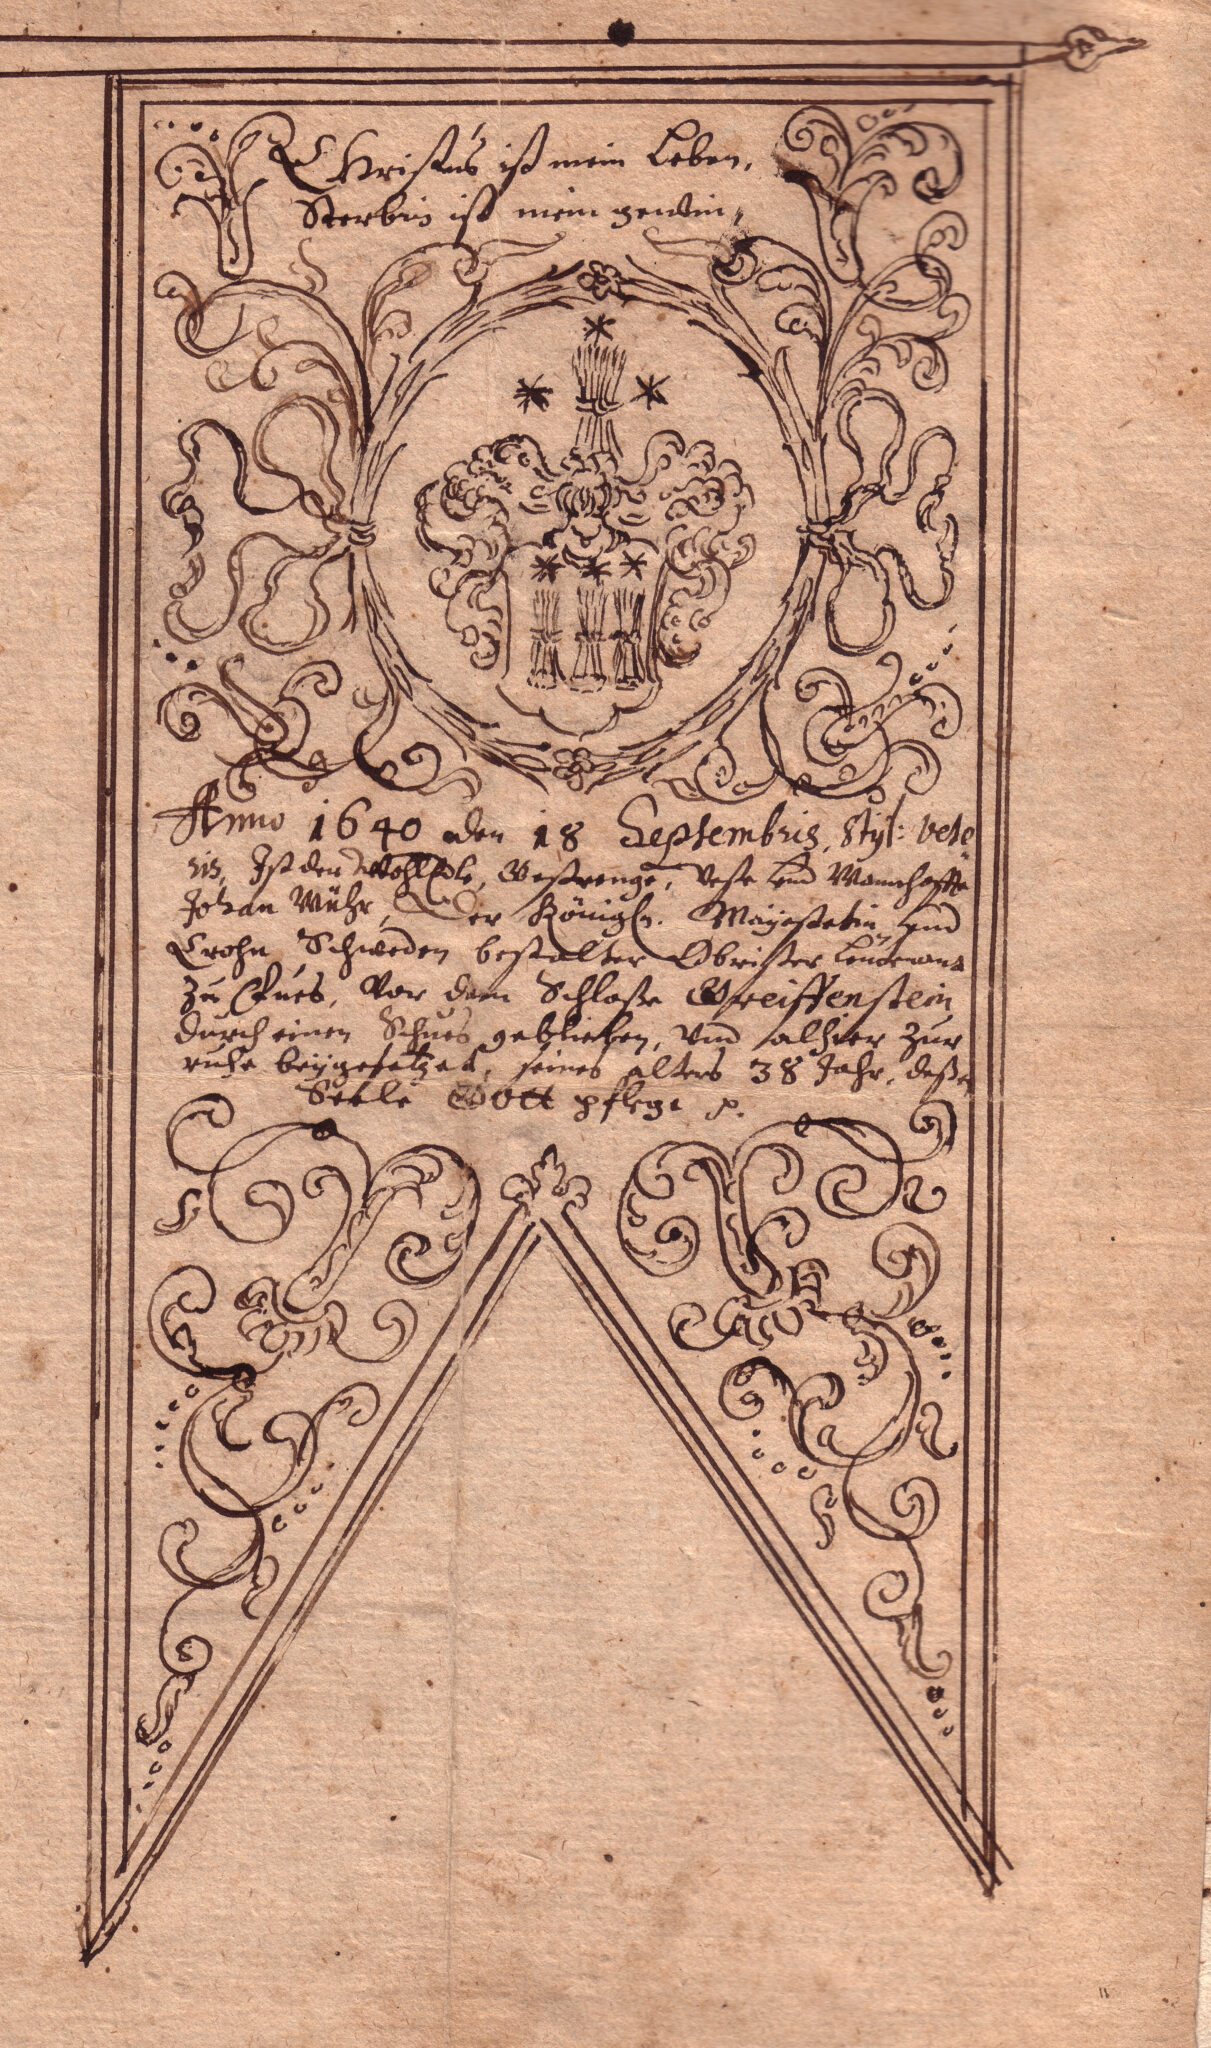 CHristus ist mein Leben,
Sterben ist mein gewin,
Anno 1640 den 18 Septembris, Styl: vete
ris, Ist der WohlEdle, Gestrenge, Veste vnd Mannhaffte
Johan Mühr, Der Königln. Mayestetin vnd
Crohn Schweden bestalter Obrister Leutenant
zu Fues, Vor dem Schloße Greiffenstein
durch einen Schues geblieben, vnd alhier zur
ruhe beygesetzet, seines alters 38 Jahr, deßen
Seele Gott pflege